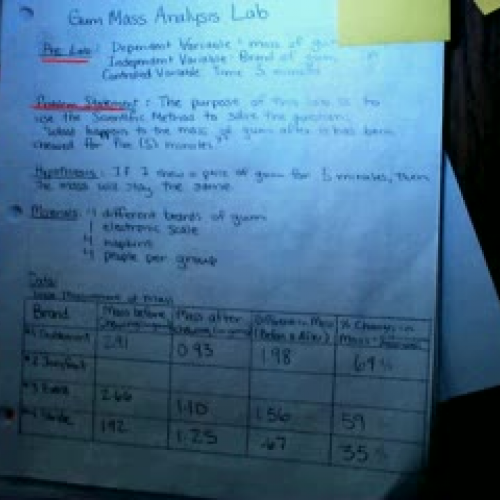 Gum Mass Analysis Lab
Pre Lab: Dependent Variable: mass of gum
Independent Variable: Brand of gum
Controlled Variable: Time 5 minutes
Problem Statement: The purpose of this lab is to
use the Scientific Method to solve the question,
"What happens to the mass of gum after it has been
chewed for five (5) minutes?"
Hypothesis: If I chew a piece of gum for 5 minutes, then
the mass will stay the same.
Materials: 4 different brands of gum
1 electronic scale
4 napkins
4 people per group
Data:
Brand | Mass before | Mass after | Difference in Mass (before & after) | % Change in Mass
#1 | 2.91 | 0.93 | 1.98 | 69%
#2 Juicyfruit
#3 | 2.66 | 1.10 | 1.56 | 59
#4 | 1.92 | 1.25 | .67 | 35%